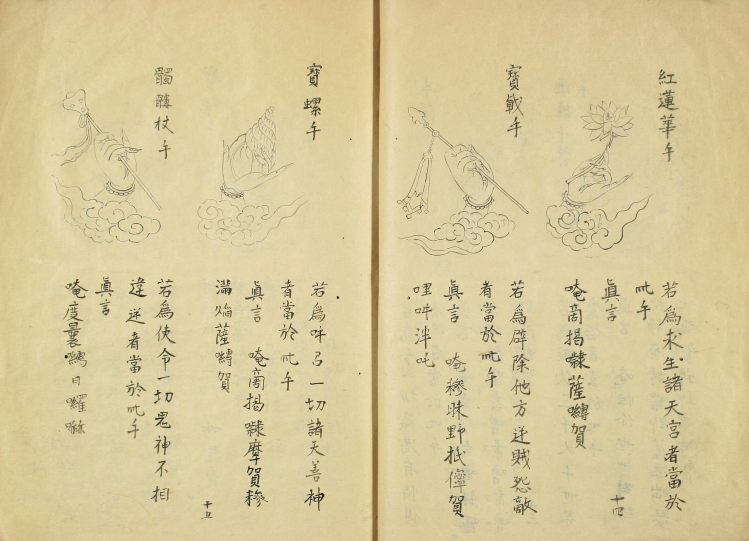 紅蓮華手
若為求生諸天宮者當於
此手
真言
唵商揭㘑薩嚩賀
寶戟手
若為辟除他方逆賊怨敵
者當於此手
真言 唵穇昧野祇儜賀
哩吽泮吒
十四
寶螺手
若為呼召一切諸天善神
者當於此手
真言 唵商揭㘑摩賀穇
滿焔薩嚩賀
髑髏杖手
若為使令一切鬼神不相
違逆者當於此手
真言
唵度曩嚩日囉
十五